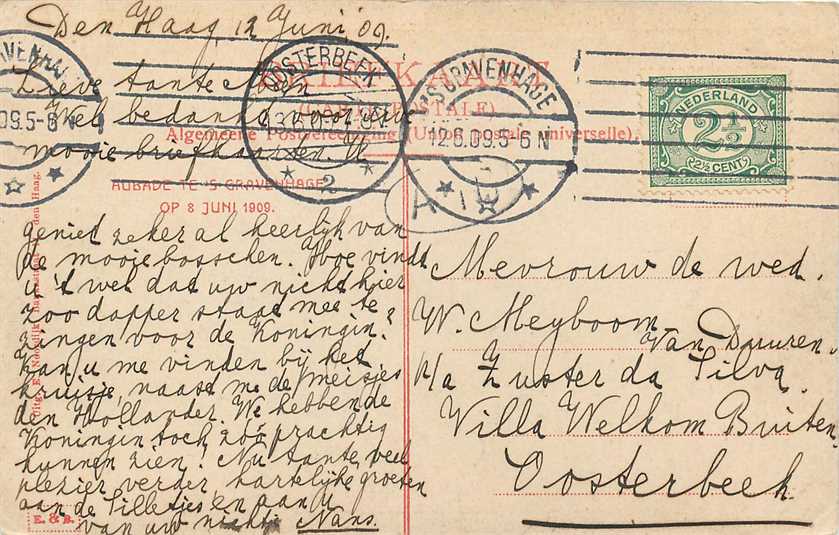 Den Haag, 12 Juni 09.
Lieve tante
Wel bedankt voor uwe
mooie briefkaarten. U
BRIEFKAART
(CARTE POSTALE)
Algemeene Postvereeniging (Union postale universelle).
OOSTERBEEK
2
'S GRAVENHAGE
12.6.09.5-6 N
09.5-6 N
NEDERLAND
2½
2½ CENT
AUBADE TE 'S-GRAVENHAGE
OP 8 JUNI 1909.
geniet zeker al heerlijk van
de mooie bosschen. Hoe vindt
u 't wel dat uw nicht hier
zoo dapper staat mee te
zingen voor de Koningin?
Kan u me vinden bij het
kruisje, naast me de meisjes
den Hollander. We hebben de
Koningin toch zóó prachtig
kunnen zien! Nu tante, veel
plezier verder, hartelijke groeten
aan de Tilletjes en aan u
van uw nichtje Nans.
Mevrouw de wed.
W. Meyboom
Van Duuren
p/a Zuster da Silva
Villa Welkom Buiten
Oosterbeek
den Haag.
E. & B.